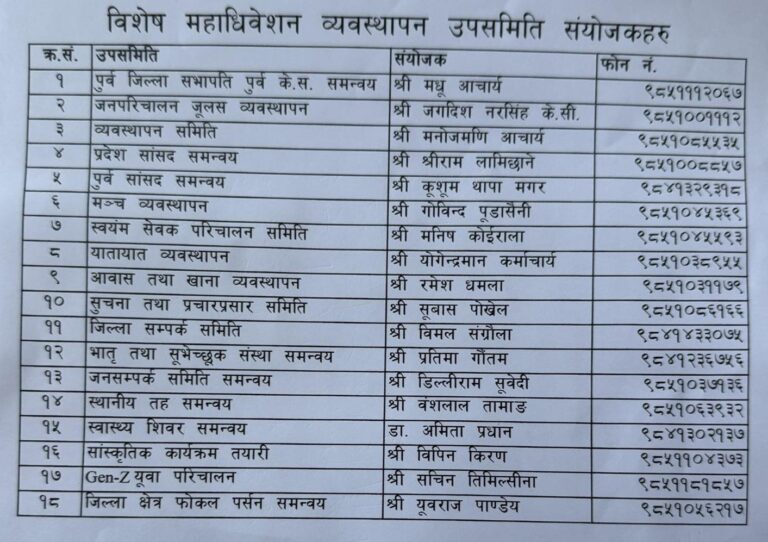 विशेष महाधिवेशन व्यवस्थापन उपसमिति संयोजकहरु
क्र.सं. उपसमिति संयोजक फोन नं.
१ पुर्व जिल्ला सभापति पुर्व के.स. समन्वय श्री मधू आचार्य ९८५१११२०६७
२ जनपरिचालन जूलस व्यवस्थापन श्री जगदिश नरसिंह के.सी. ९८५१००१११२
३ व्यवस्थापन समिति श्री मनोजमणि आचार्य ९८५१०८५५३५
४ प्रदेश सांसद समन्वय श्री श्रीराम लामिछाने ९८५१००८८५७
५ पुर्व सांसद समन्वय श्री कूशूम थापा मगर ९८४१३२९३१८
६ मञ्च व्यवस्थापन श्री गोविन्द पूडासैनी ९८५१०४५३६९
७ स्वयंम सेवक परिचालन समिति श्री मनिष कोईराला ९८५१०४५५९३
८ यातायात व्यवस्थापन श्री योगेन्द्रमान कर्माचार्य ९८५१०३८९५५
९ आवास तथा खाना व्यवस्थापन श्री रमेश धमला ९८५१०३११७९
१० सुचना तथा प्रचारप्रसार समिति श्री सूबास पोखेल ९८५१०८६१६६
११ जिल्ला सम्पर्क समिति श्री विमल संग्रौला ९८४१४३३०७५
१२ भातृ तथा सूभेच्छूक संस्था समन्वय श्री प्रतिमा गौंतम ९८४१२३६७५६
१३ जनसम्पर्क समिति समन्वय श्री डिल्लीराम सूवेदी ९८५१०३७१३६
१४ स्थानीय तह समन्वय श्री वंशलाल तामाङ ९८५१०६३९३२
१५ स्वास्थ्य शिवर समन्वय डा. अमिता प्रधान ९८४१३०२१३७
१६ सांस्कृतिक कार्यक्रम तयारी श्री विपिन किरण ९८५११०४३७३
१७ Gen-Z यूवा परिचालन श्री सचिन तिमिल्सीना ९८५११८१८५७
१८ जिल्ला क्षेत्र फोकल पर्सन समन्वय श्री यूवराज पाण्डेय ९८५१०५६२१७